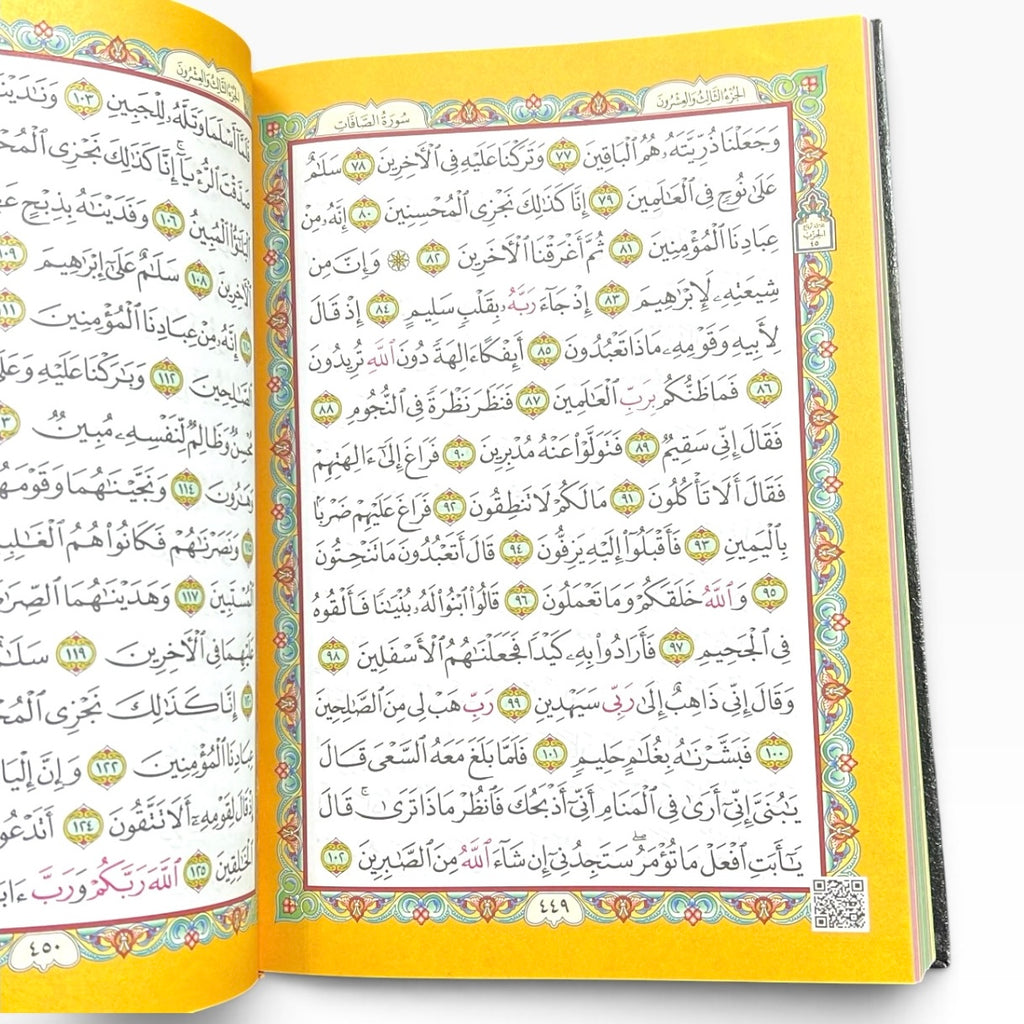 الجزء الثالث والعشرون
سورة الصافات
وَجَعَلْنَا ذُرِّيَّتَهُۥ هُمُ ٱلْبَاقِينَ ٧٧ وَتَرَكْنَا عَلَيْهِ فِى ٱلْأَخِرِينَ ٧٨ سَلَٰمٌ
عَلَىٰ نُوحٍ فِى ٱلْعَٰلَمِينَ ٧٩ إِنَّا كَذَٰلِكَ نَجْزِى ٱلْمُحْسِنِينَ ٨٠ إِنَّهُۥ مِنْ
عِبَادِنَا ٱلْمُؤْمِنِينَ ٨١ ثُمَّ أَغْرَقْنَا ٱلْأَخَرِينَ ٨٢ ۞ وَإِنَّ مِن
شِيعَتِهِۦ لَإِبْرَٰهِيمَ ٨٣ إِذْ جَآءَ رَبَّهُۥ بِقَلْبٍ سَلِيمٍ ٨٤ إِذْ قَالَ
لِأَبِيهِ وَقَوْمِهِۦ مَاذَا تَعْبُدُونَ ٨٥ أَئِفْكًا ءَالِهَةً دُونَ ٱللَّهِ تُرِيدُونَ
٨٦ فَمَا ظَنُّكُم بِرَبِّ ٱلْعَٰلَمِينَ ٨٧ فَنَظَرَ نَظْرَةً فِى ٱلنُّجُومِ ٨٨
فَقَالَ إِنِّى سَقِيمٌ ٨٩ فَتَوَلَّوْا۟ عَنْهُ مُدْبِرِينَ ٩٠ فَرَاغَ إِلَىٰٓ ءَالِهَتِهِمْ
فَقَالَ أَلَا تَأْكُلُونَ ٩١ مَا لَكُمْ لَا تَنطِقُونَ ٩٢ فَرَاغَ عَلَيْهِمْ ضَرْبًۢا
بِٱلْيَمِينِ ٩٣ فَأَقْبَلُوٓا۟ إِلَيْهِ يَزِفُّونَ ٩٤ قَالَ أَتَعْبُدُونَ مَا تَنْحِتُونَ
٩٥ وَٱللَّهُ خَلَقَكُمْ وَمَا تَعْمَلُونَ ٩٦ قَالُوا۟ ٱبْنُوا۟ لَهُۥ بُنْيَٰنًا فَأَلْقُوهُ
فِى ٱلْجَحِيمِ ٩٧ فَأَرَادُوا۟ بِهِۦ كَيْدًا فَجَعَلْنَٰهُمُ ٱلْأَسْفَلِينَ ٩٨
وَقَالَ إِنِّى ذَاهِبٌ إِلَىٰ رَبِّى سَيَهْدِينِ ٩٩ رَبِّ هَبْ لِى مِنَ ٱلصَّٰلِحِينَ
١٠٠ فَبَشَّرْنَٰهُ بِغُلَٰمٍ حَلِيمٍ ١٠١ فَلَمَّا بَلَغَ مَعَهُ ٱلسَّعْىَ قَالَ
يَٰبُنَىَّ إِنِّىٓ أَرَىٰ فِى ٱلْمَنَامِ أَنِّىٓ أَذْبَحُكَ فَٱنظُرْ مَاذَا تَرَىٰ ۚ قَالَ
يَٰٓأَبَتِ ٱفْعَلْ مَا تُؤْمَرُ ۖ سَتَجِدُنِىٓ إِن شَآءَ ٱللَّهُ مِنَ ٱلصَّٰبِرِينَ ١٠٢
٤٤٩
الحزب
٤٥
الجزء الثالث والعشرون
فَلَمَّآ أَسْلَمَا وَتَلَّهُۥ لِلْجَبِينِ ١٠٣
ٱلرُّءْيَآ ۚ إِنَّا كَذَٰلِكَ نَجْزِى
ٱلْمُبِينُ ١٠٦ وَفَدَيْنَٰهُ بِذِبْحٍ
١٠٨ سَلَٰمٌ عَلَىٰٓ إِبْرَٰهِيمَ ١٠٩
إِنَّهُۥ مِنْ عِبَادِنَا ٱلْمُؤْمِنِينَ ١١١
١١٢ وَبَٰرَكْنَا عَلَيْهِ
وَظَالِمٌ لِّنَفْسِهِۦ مُبِينٌ
١١٤ وَنَجَّيْنَٰهُمَا
وَنَصَرْنَٰهُمْ فَكَانُوا۟ هُمُ
١١٧ وَهَدَيْنَٰهُمَا
فِى ٱلْأَخِرِينَ ١١٩
إِنَّا كَذَٰلِكَ نَجْزِى
عِبَادِنَا ٱلْمُؤْمِنِينَ ١٢٢ وَإِنَّ
لِقَوْمِهِۦٓ أَلَا تَتَّقُونَ ١٢٤
١٢٥ ٱللَّهَ رَبَّكُمْ وَرَبَّ
٤٥٠